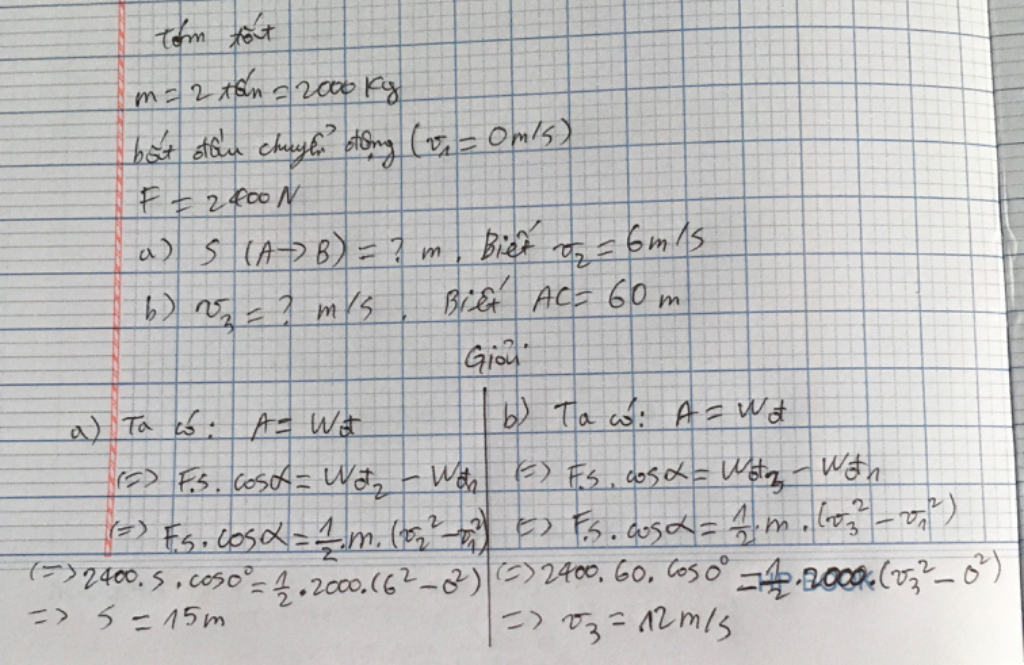 tóm tắt
m = 2 tấn = 2000 Kg
bắt đầu chuyển động (v₁ = 0 m/s)
F = 2400 N
a) S (A→B) = ? m. Biết v₂ = 6 m/s
b) v₃ = ? m/s. Biết AC = 60 m
Giải:
a) Ta có: A = Wđ
(=) F.s. cosα = Wđ₂ - Wđ₁
(=) F.s. cosα = 1/2.m.(v₂² - v₁²)
(=) 2400.s.cos0° = 1/2.2000.(6² - 0²)
=> s = 15m
b) Ta có: A = Wđ
(=) F.s. cosα = Wđ₃ - Wđ₁
(=) F.s. cosα = 1/2.m.(v₃² - v₁²)
(=) 2400.60.cos0° = 1/2.2000.(v₃² - 0²)
=> v₃ = 12 m/s